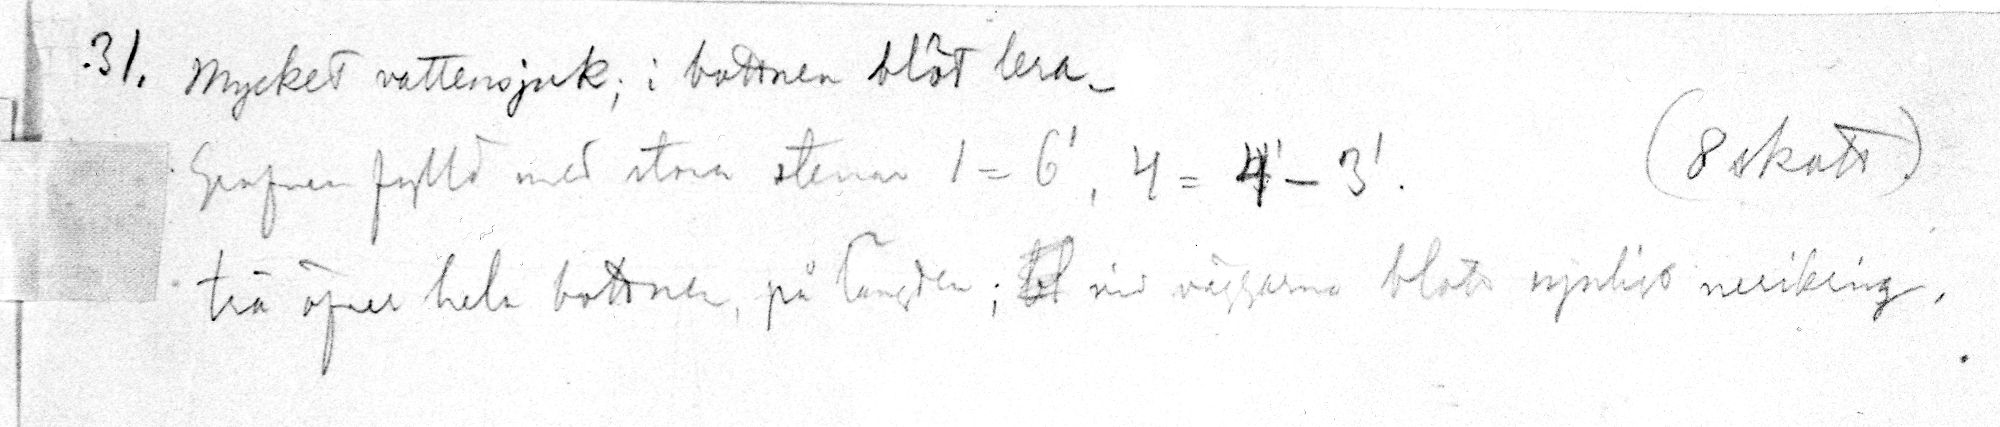 31. Mycket vattensjuk; i bottnen blöt lera_
Grafven fylld med stora stenar 1 = 6', 4 = 4' – 3'. (8 skatt)
trä öfver hela bottnen, på längden; vid väggarna blott synligt